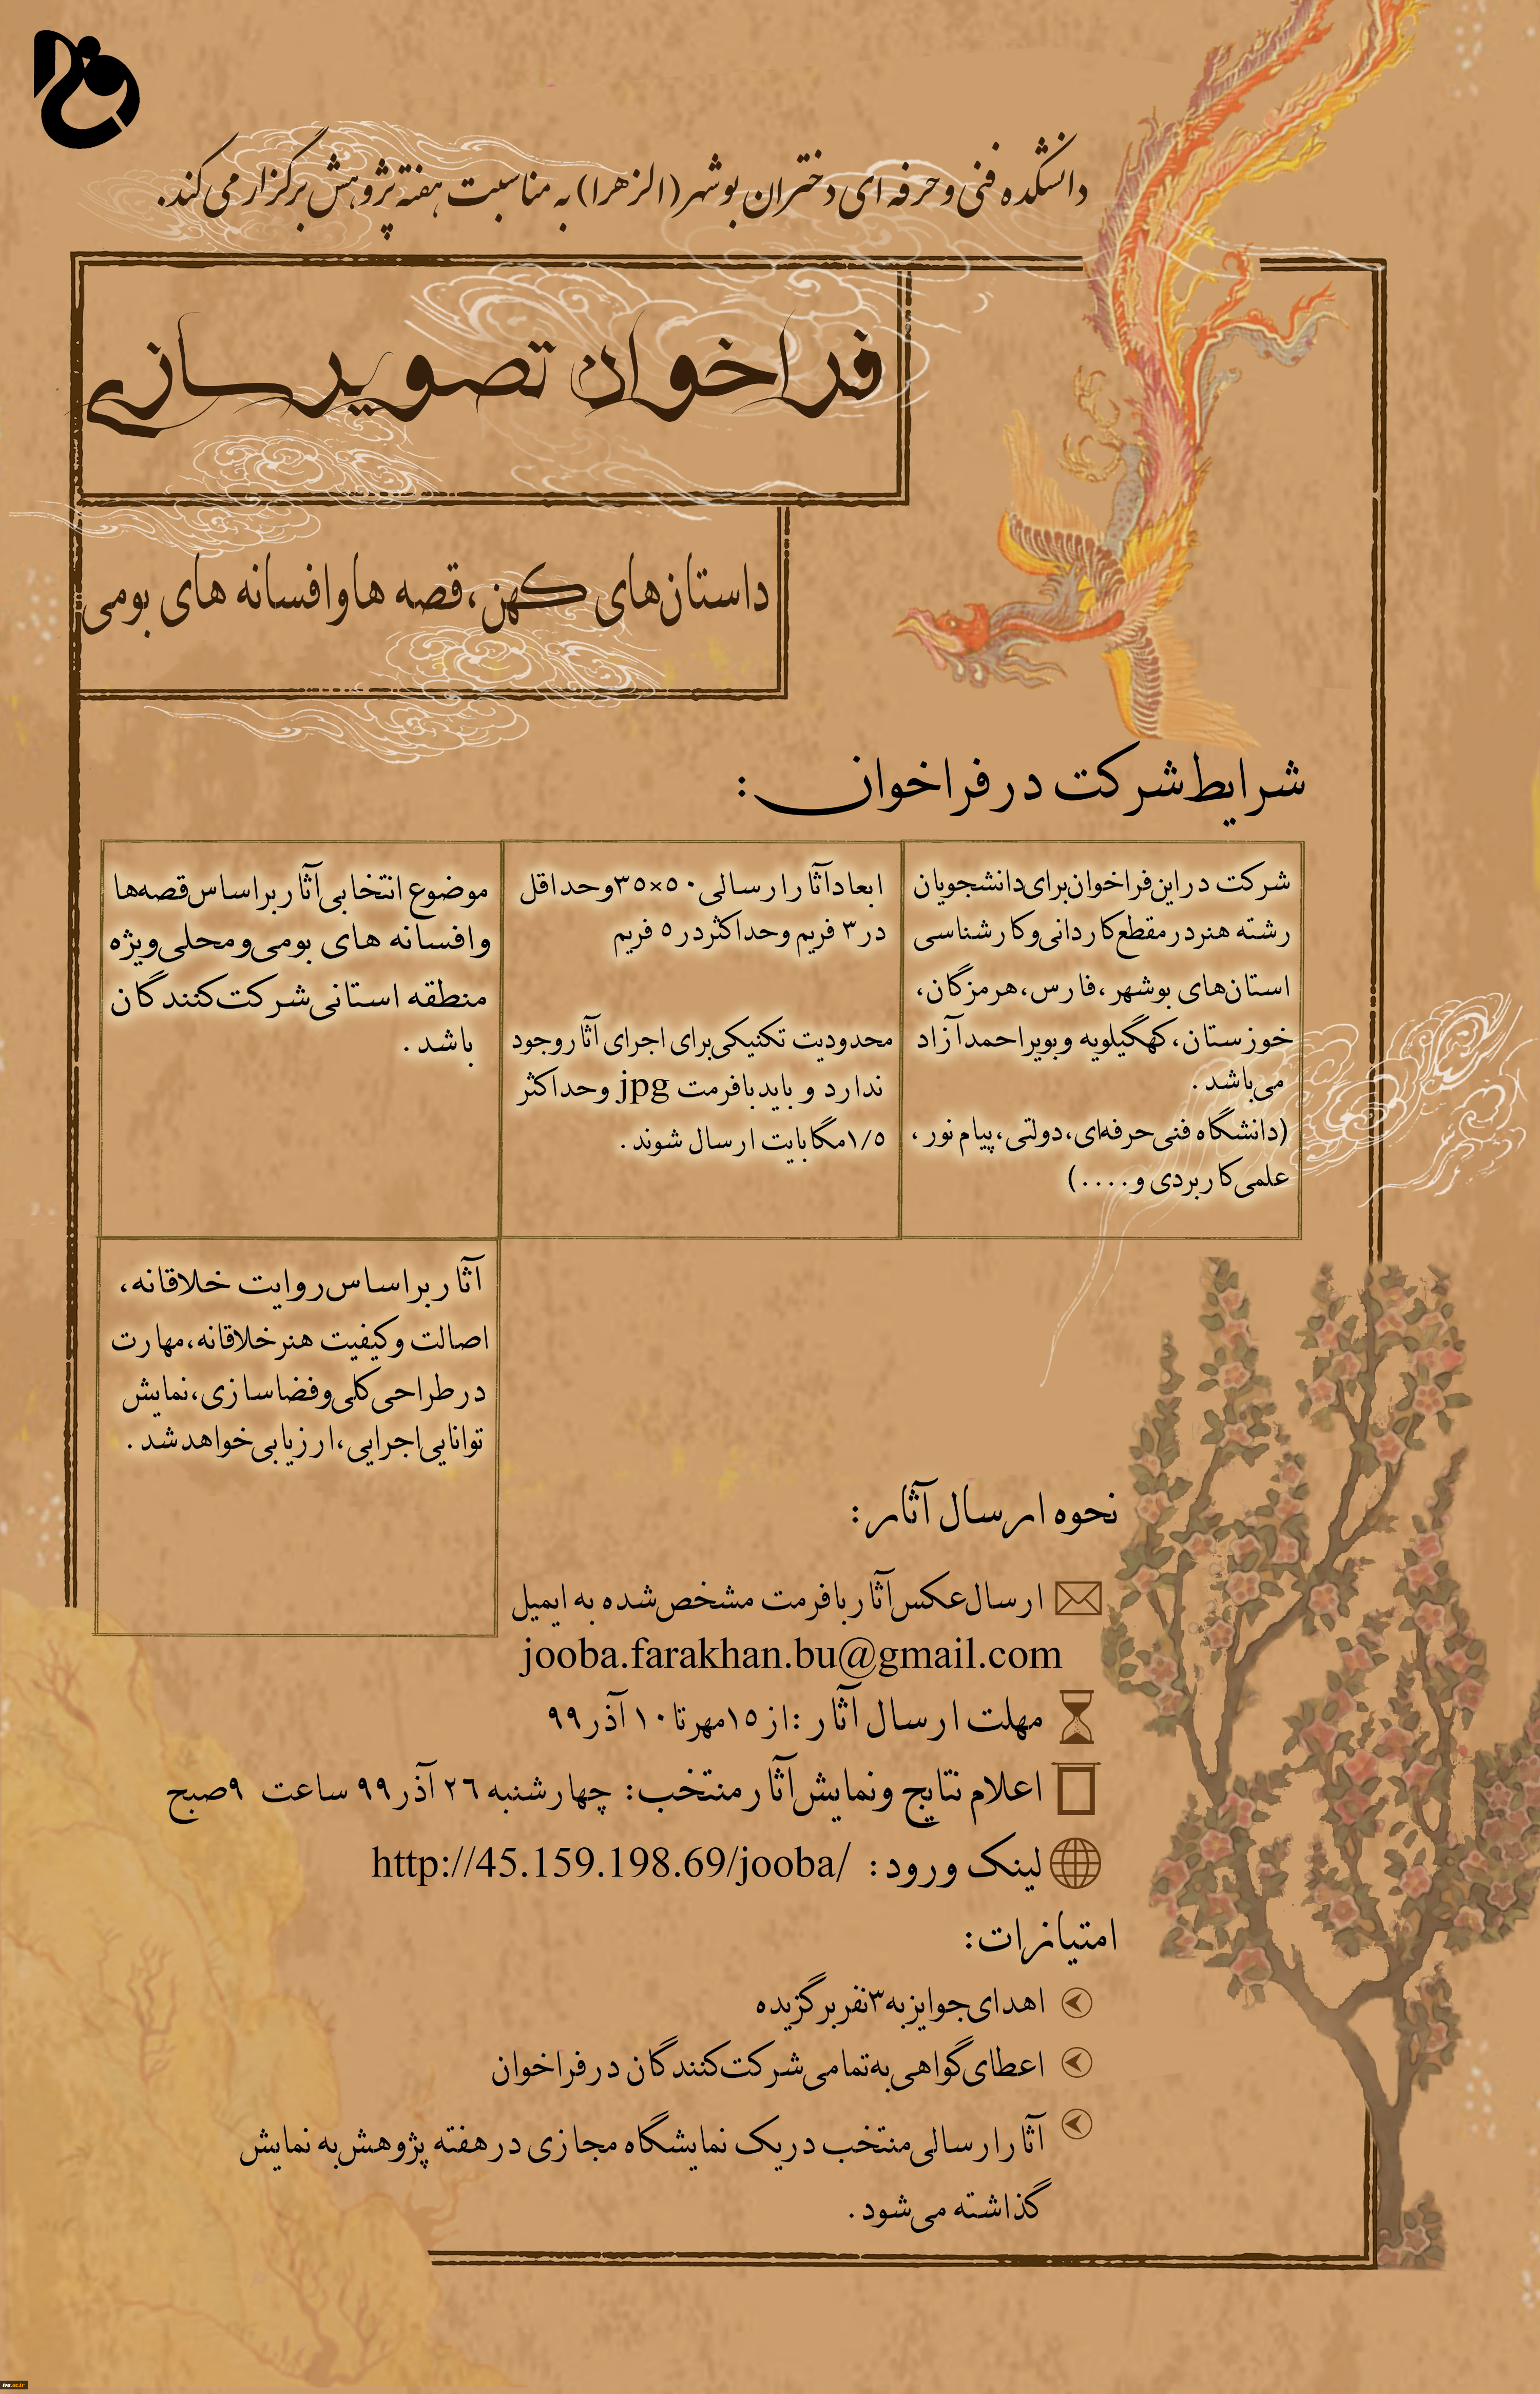 دانشکده فنی و حرفه ای دختران بوشهر (الزهرا) به مناسبت هفته پژوهش برگزار می کند.
فراخوان تصویرسازی
داستان‌های کهن، قصه ها و افسانه های بومی
شرایط شرکت در فراخوان:
شرکت در این فراخوان برای دانشجویان
رشته هنر در مقطع کاردانی و کارشناسی
استان‌های بوشهر، فارس، هرمزگان،
خوزستان، کهگیلویه و بویراحمد آزاد
می‌باشد.
(دانشگاه فنی حرفه‌ای، دولتی، پیام نور،
علمی کاربردی و....)
ابعاد آثار ارسالی ۵۰×۳۵ و حداقل
در ۳ فریم و حداکثر در ۵ فریم
محدودیت تکنیکی برای اجرای آثار وجود
ندارد و باید با فرمت jpg و حداکثر
۱/۵ مگابایت ارسال شوند.
موضوع انتخابی آثار بر اساس قصه‌ها
و افسانه های بومی و محلی ویژه
منطقه استانی شرکت کنندگان
باشد.
آثار بر اساس روایت خلاقانه،
اصالت و کیفیت هنر خلاقانه، مهارت
در طراحی کلی و فضاسازی، نمایش
توانایی اجرایی، ارزیابی خواهد شد.
نحوه ارسال آثار:
ارسال عکس آثار با فرمت مشخص شده به ایمیل
jooba.farakhan.bu@gmail.com
مهلت ارسال آثار: از ۱۵ مهر تا ۱۰ آذر ۹۹
اعلام نتایج و نمایش آثار منتخب: چهارشنبه ۲۶ آذر ۹۹ ساعت ۹ صبح
لینک ورود: http://45.159.198.69/jooba/
امتیازات:
اهدای جوایز به ۳ نفر برگزیده
اعطای گواهی به تمامی شرکت کنندگان در فراخوان
آثار ارسالی منتخب در یک نمایشگاه مجازی در هفته پژوهش به نمایش
گذاشته می‌شود.
tvu.ac.ir